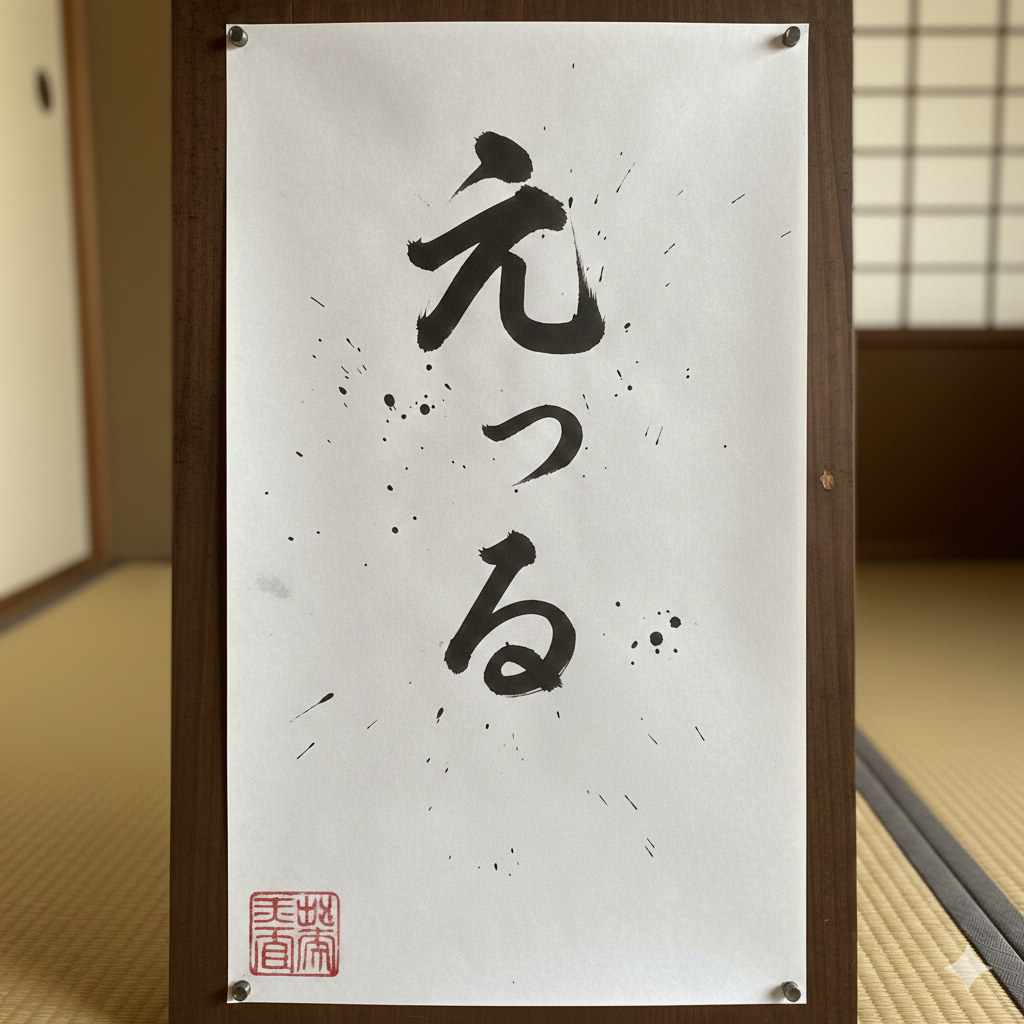 えっる